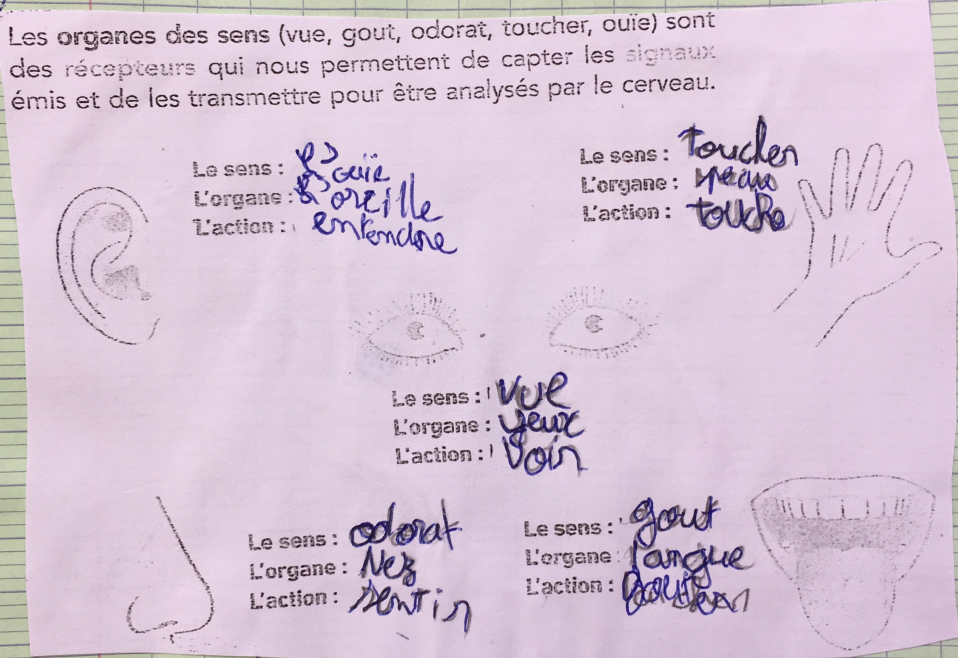 Les organes des sens (vue, gout, odorat, toucher, ouïe) sont
des récepteurs qui nous permettent de capter les signaux
émis et de les transmettre pour être analysés par le cerveau.
Le sens : L'ouïe
L'organe : L'oreille
L'action : entendre
Le sens : toucher
L'organe : peau
L'action : touche
Le sens : vue
L'organe : yeux
L'action : voir
Le sens : odorat
L'organe : Nez
L'action : sentir
Le sens : gout
L'organe langue
L'action :